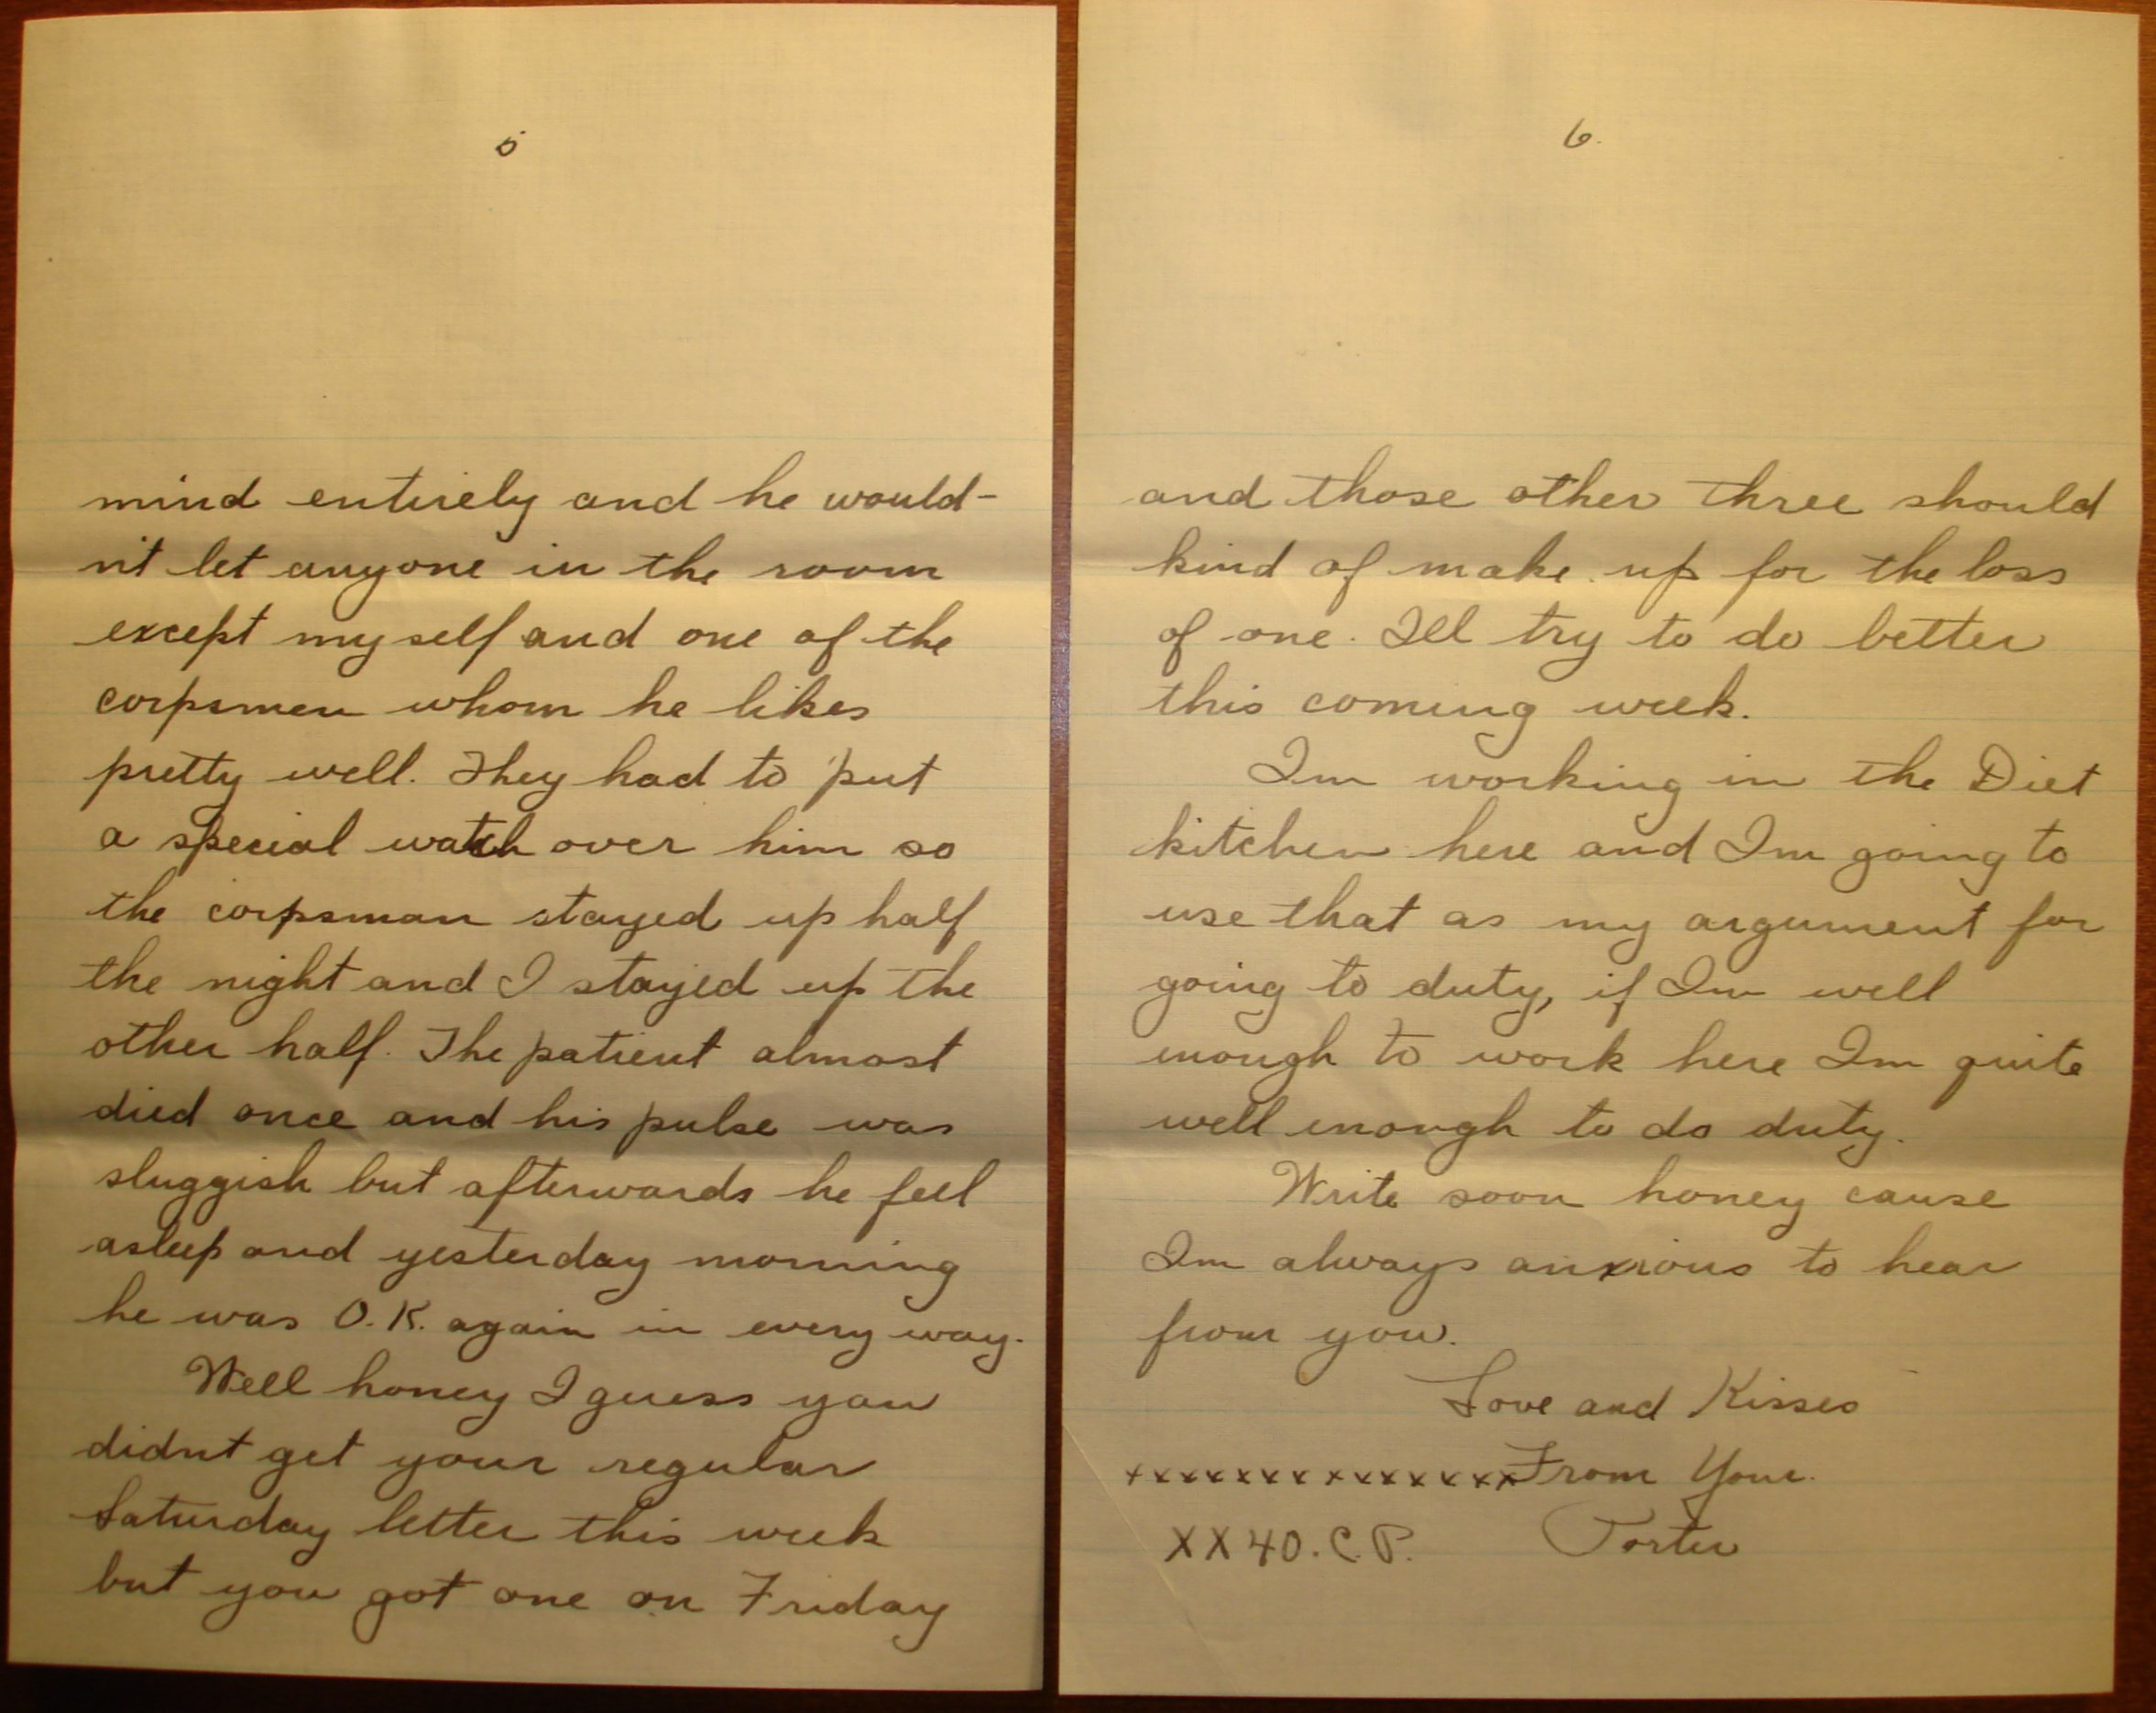 5
mind entirely and he would-
n't let anyone in the room
except myself and one of the
corpsmen whom he likes
pretty well. They had to put
a special watch over him so
the corpsman stayed up half
the night and I stayed up the
other half. The patient almost
died once and his pulse was
sluggish but afterwards he feel
asleep and yesterday morning
he was O.K. again in every way.
Well honey I guess you
didnt get your regular
Saturday letter this week
but you got one on Friday
6.
and those other three should
kind of make up for the loss
of one. Ill try to do better
this coming week.
Im working in the Diet
kitchen here and Im going to
use that as my argument for
going to duty, if Im well
enough to work here Im quite
well enough to do duty.
Write soon honey cause
Im always anxious to hear
from you.
Love and Kisses
xxxxxxxxxxxxxxx From Your
XX40.C.P. Porter